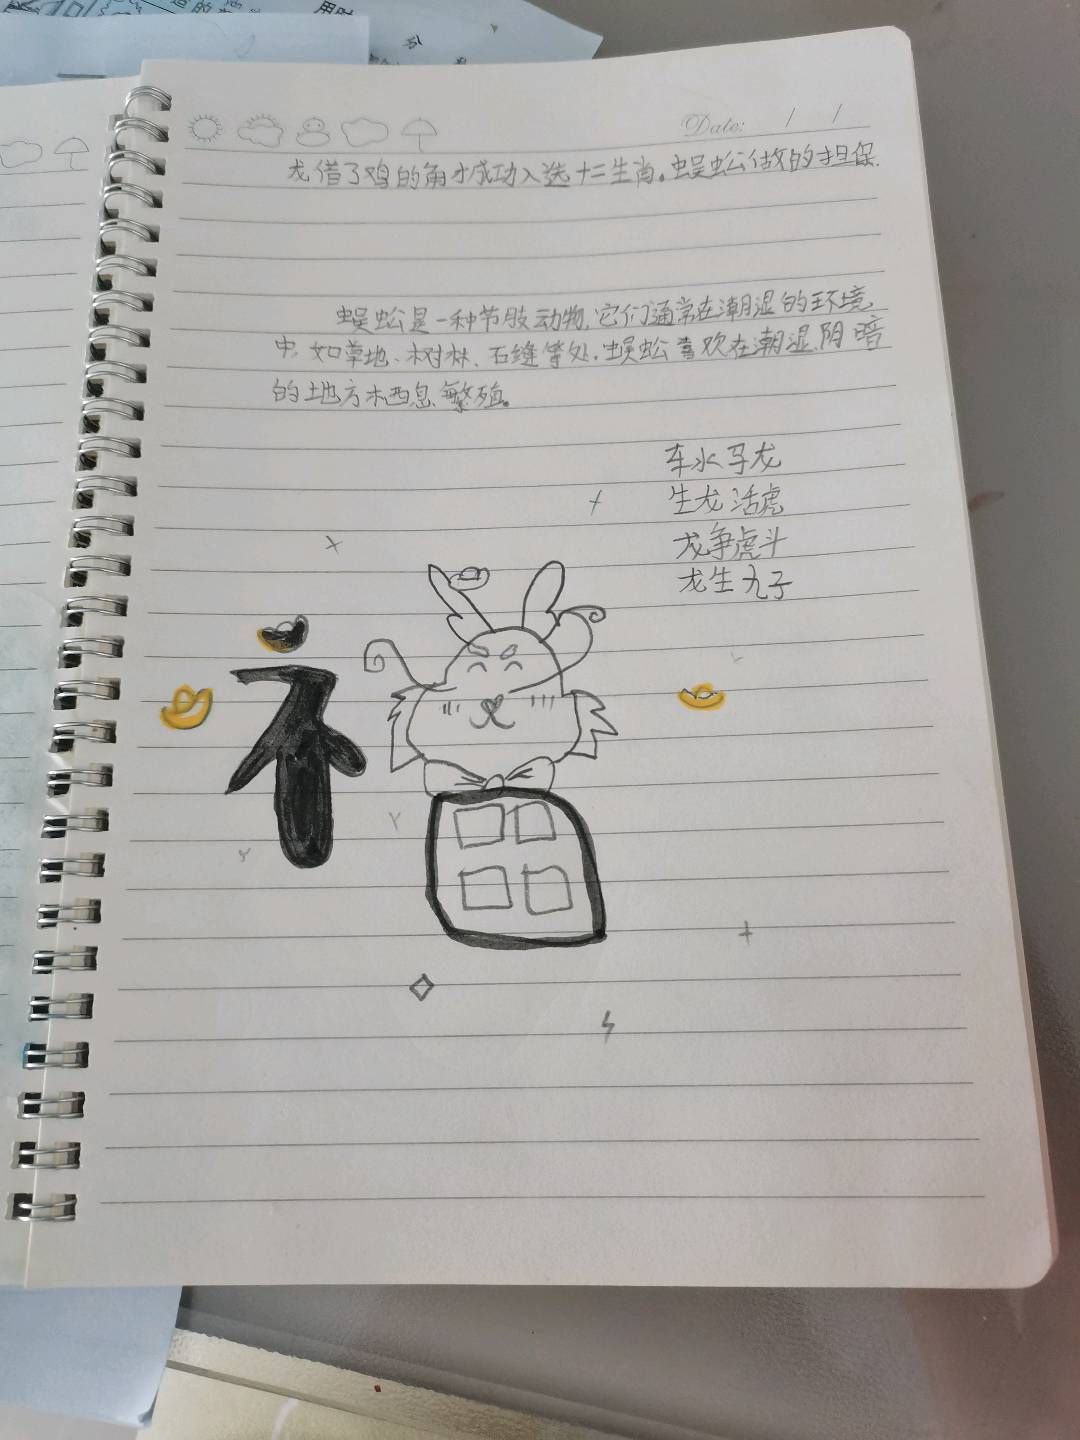 Date: / /
龙借了鸡的角才成功入选十二生肖。蜈蚣做的担保.
蜈蚣是一种节肢动物,它们通常在潮湿的环境
中,如草地、树林、石缝等处.蜈蚣喜欢在潮湿、阴暗
的地方栖息、繁殖。
车水马龙
生龙活虎
龙争虎斗
龙生九子